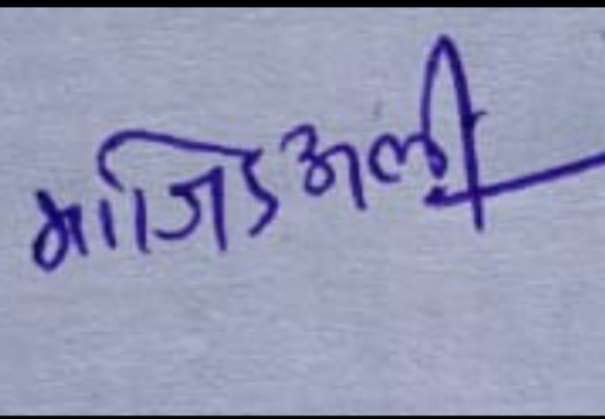 माजिद अली